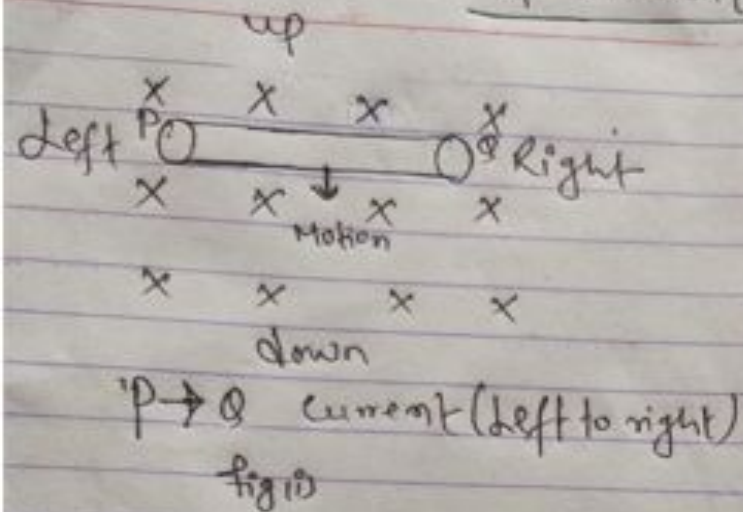 up
x x x x
Left P Q Right
x x x x
Motion
x x x x
down
P → Q current (Left to right)
fig (i)